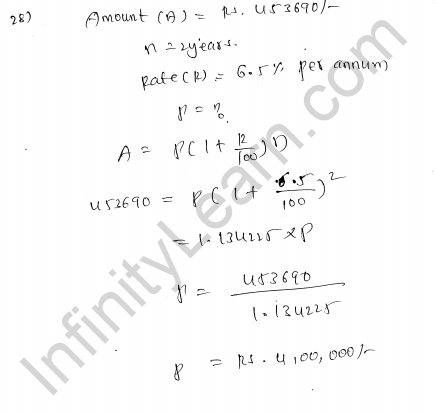 28) Amount (A) = Rs. 453690/-
n = 2years.
Rate(R) = 6.5% per annum
P = ?
A = P(1 + R/100)n
453690 = P(1 + 6.5/100)^2
= 1.134225 x P
P = 453690/1.134225
P = Rs. 4,00,000/-
InfinityLearn.com